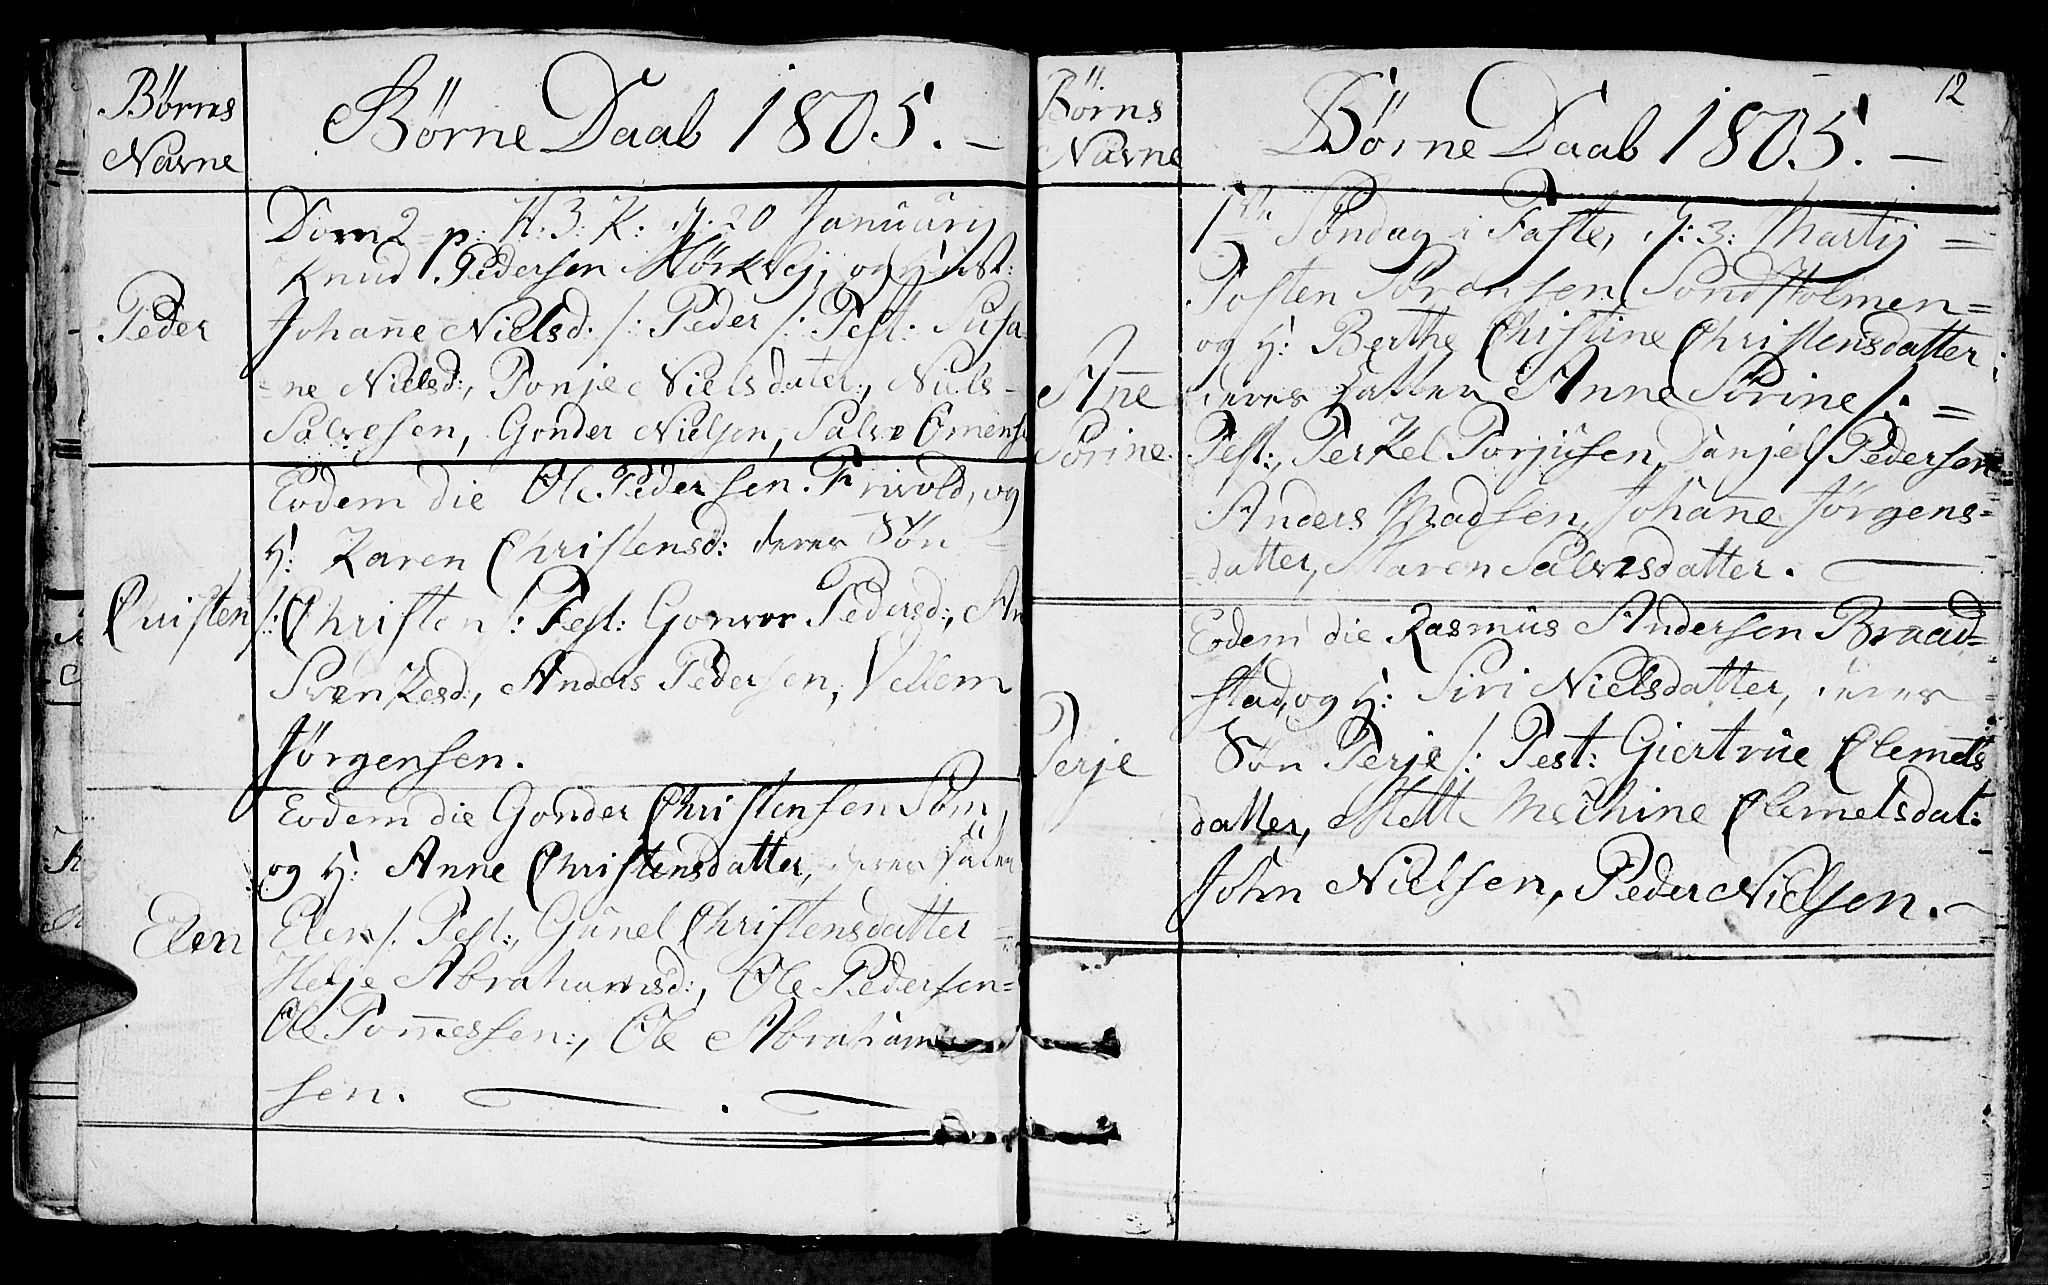 Børns
Navne
Børne Daab 1805. –
Peder
Dom 2 p: H: 3: K: d: 20 Januarij
Knud Pedersen Mørkvej, og Hust:
Johanne Nielsd: /: Peder /: Test: Susa-
=ne Nielsd:, Tonje Nielsdater:, Niels
Salvesen, Gonder Nielsen, Salve Omens
Christen
Eodem die Ole Pedersen Frivold, og
H: Karen Christensd: deres Søn
/: Christen /: Test: Gonvor Pedersd:, An
Svenkesd:, Anders Pedersen, Vellem
Jørgensen.
Elen
Eodem die Gonder Christensen Søm,
og H: Anne Christensdatter, deres
Elen /. Test:, Gunel Christensdatter =
Helje Abrahamsd:, Ole Pedersen =
Ole Tommessen:, Ole Abraham
sen.
12
Børns
Navne
Børne Daab 1805. –
Anne
Sørine
1ste Søndag i Faste, d: 3: Martij =
Tosten Sørensen Sondholmen =
og H: Berthe Christine Christensdatter,
deres Datter Anne Sørine /. =
Test:, Terkel Torjusen, Danjel Pedersen
Anders Madsen, Johanne Jørgens=
=datter, Maren Salvesdatter.
Terje
Eodem die Rasmus Andersen Braad=
stad, og H: Siri Nielsdatter, deres
Søn Terje /: Test: Giertrue Clemets
datter, Mette Mechine Clemetsdat:
John Nielsen, Peder Nielsen. –